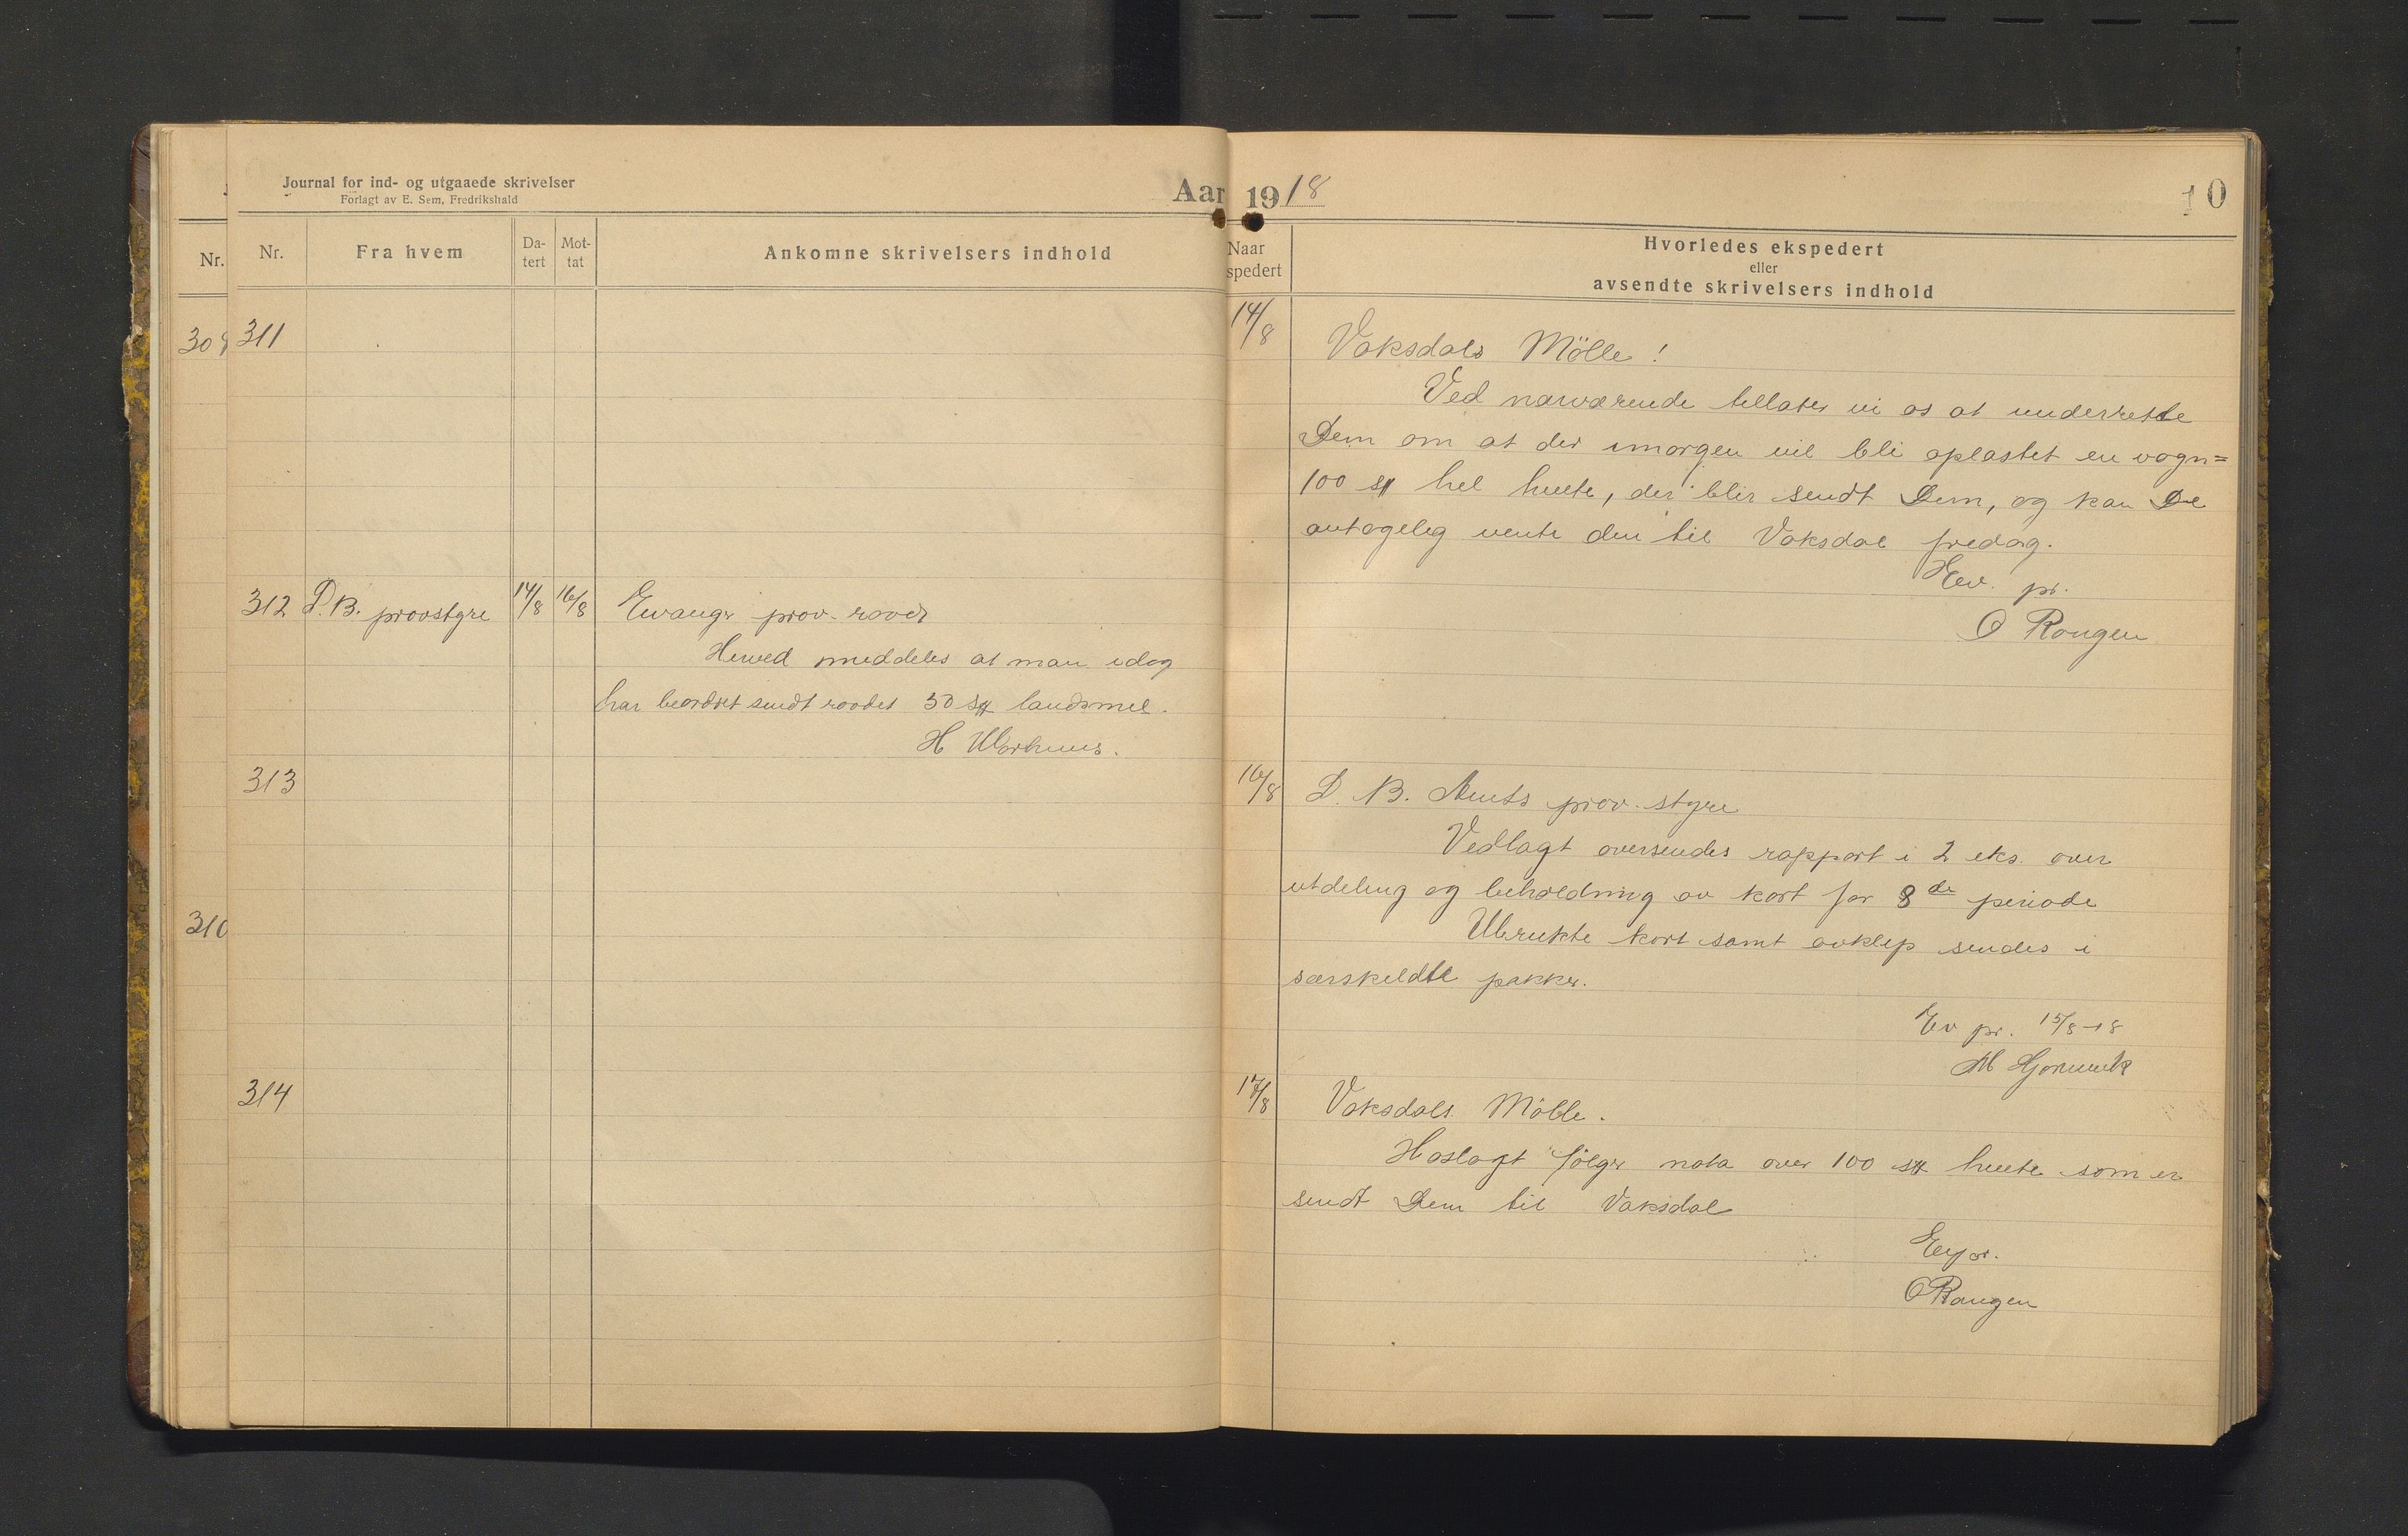 Journal for ind- og utgaaede skrivelser
Forlagt av E. Sem, Fredrikshald
Aar 1918
10
Nr.
Nr.
Fra hvem
Da-
tert
Mot-
tat
Ankomne skrivelsers indhold
Naar
spedert
Hvorledes ekspedert
eller
avsendte skrivelsers indhold
309
311
14/8
Vaksdals Mölle!
Ved nærværende tillates vi os at underrette
Dem om at der imorgen vil bli oplastet en vogn=
100 sk hel hvete, der blir sendt Dem, og kan De
antagelig vente den til Vaksdal fredag.
Ev. pr.
O Rongen
312
D.B. provstyre
14/8
16/8
Evanger prov. raad
Herved meddeles at man idag
har beordret sendt raadet 50 sk landsmel.
H
313
16/8
D. B. Amts prov. styre
Vedlagt oversendes rapport i 2 eks. over
utdeling og beholdning av kort for 8de periode
Ubrukte kort samt avklip sendes i
særskildte pakker.
Ev pr. 15/8-18
310
314
17/8
Vaksdals Mölle.
Hoslagt fölger nota over 100 sk hvete som er
sendt Dem til Vaksdal
Ev pr.
O Rongen